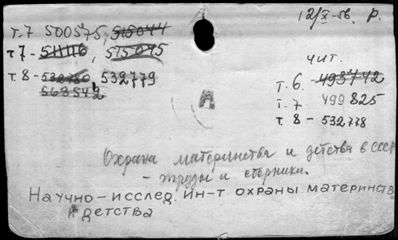 12/X-56. Р.
т.7 500575, 515044
т7 - 511116, 515045
т.8 - 532780, 532779
563542
чит.
т.6. 493742
т.7 499825
т.8 - 532778
Охрана материнства и детства в СССР
- труды и сборники.
Научно-исслед. ин-т охраны материнств
и детства